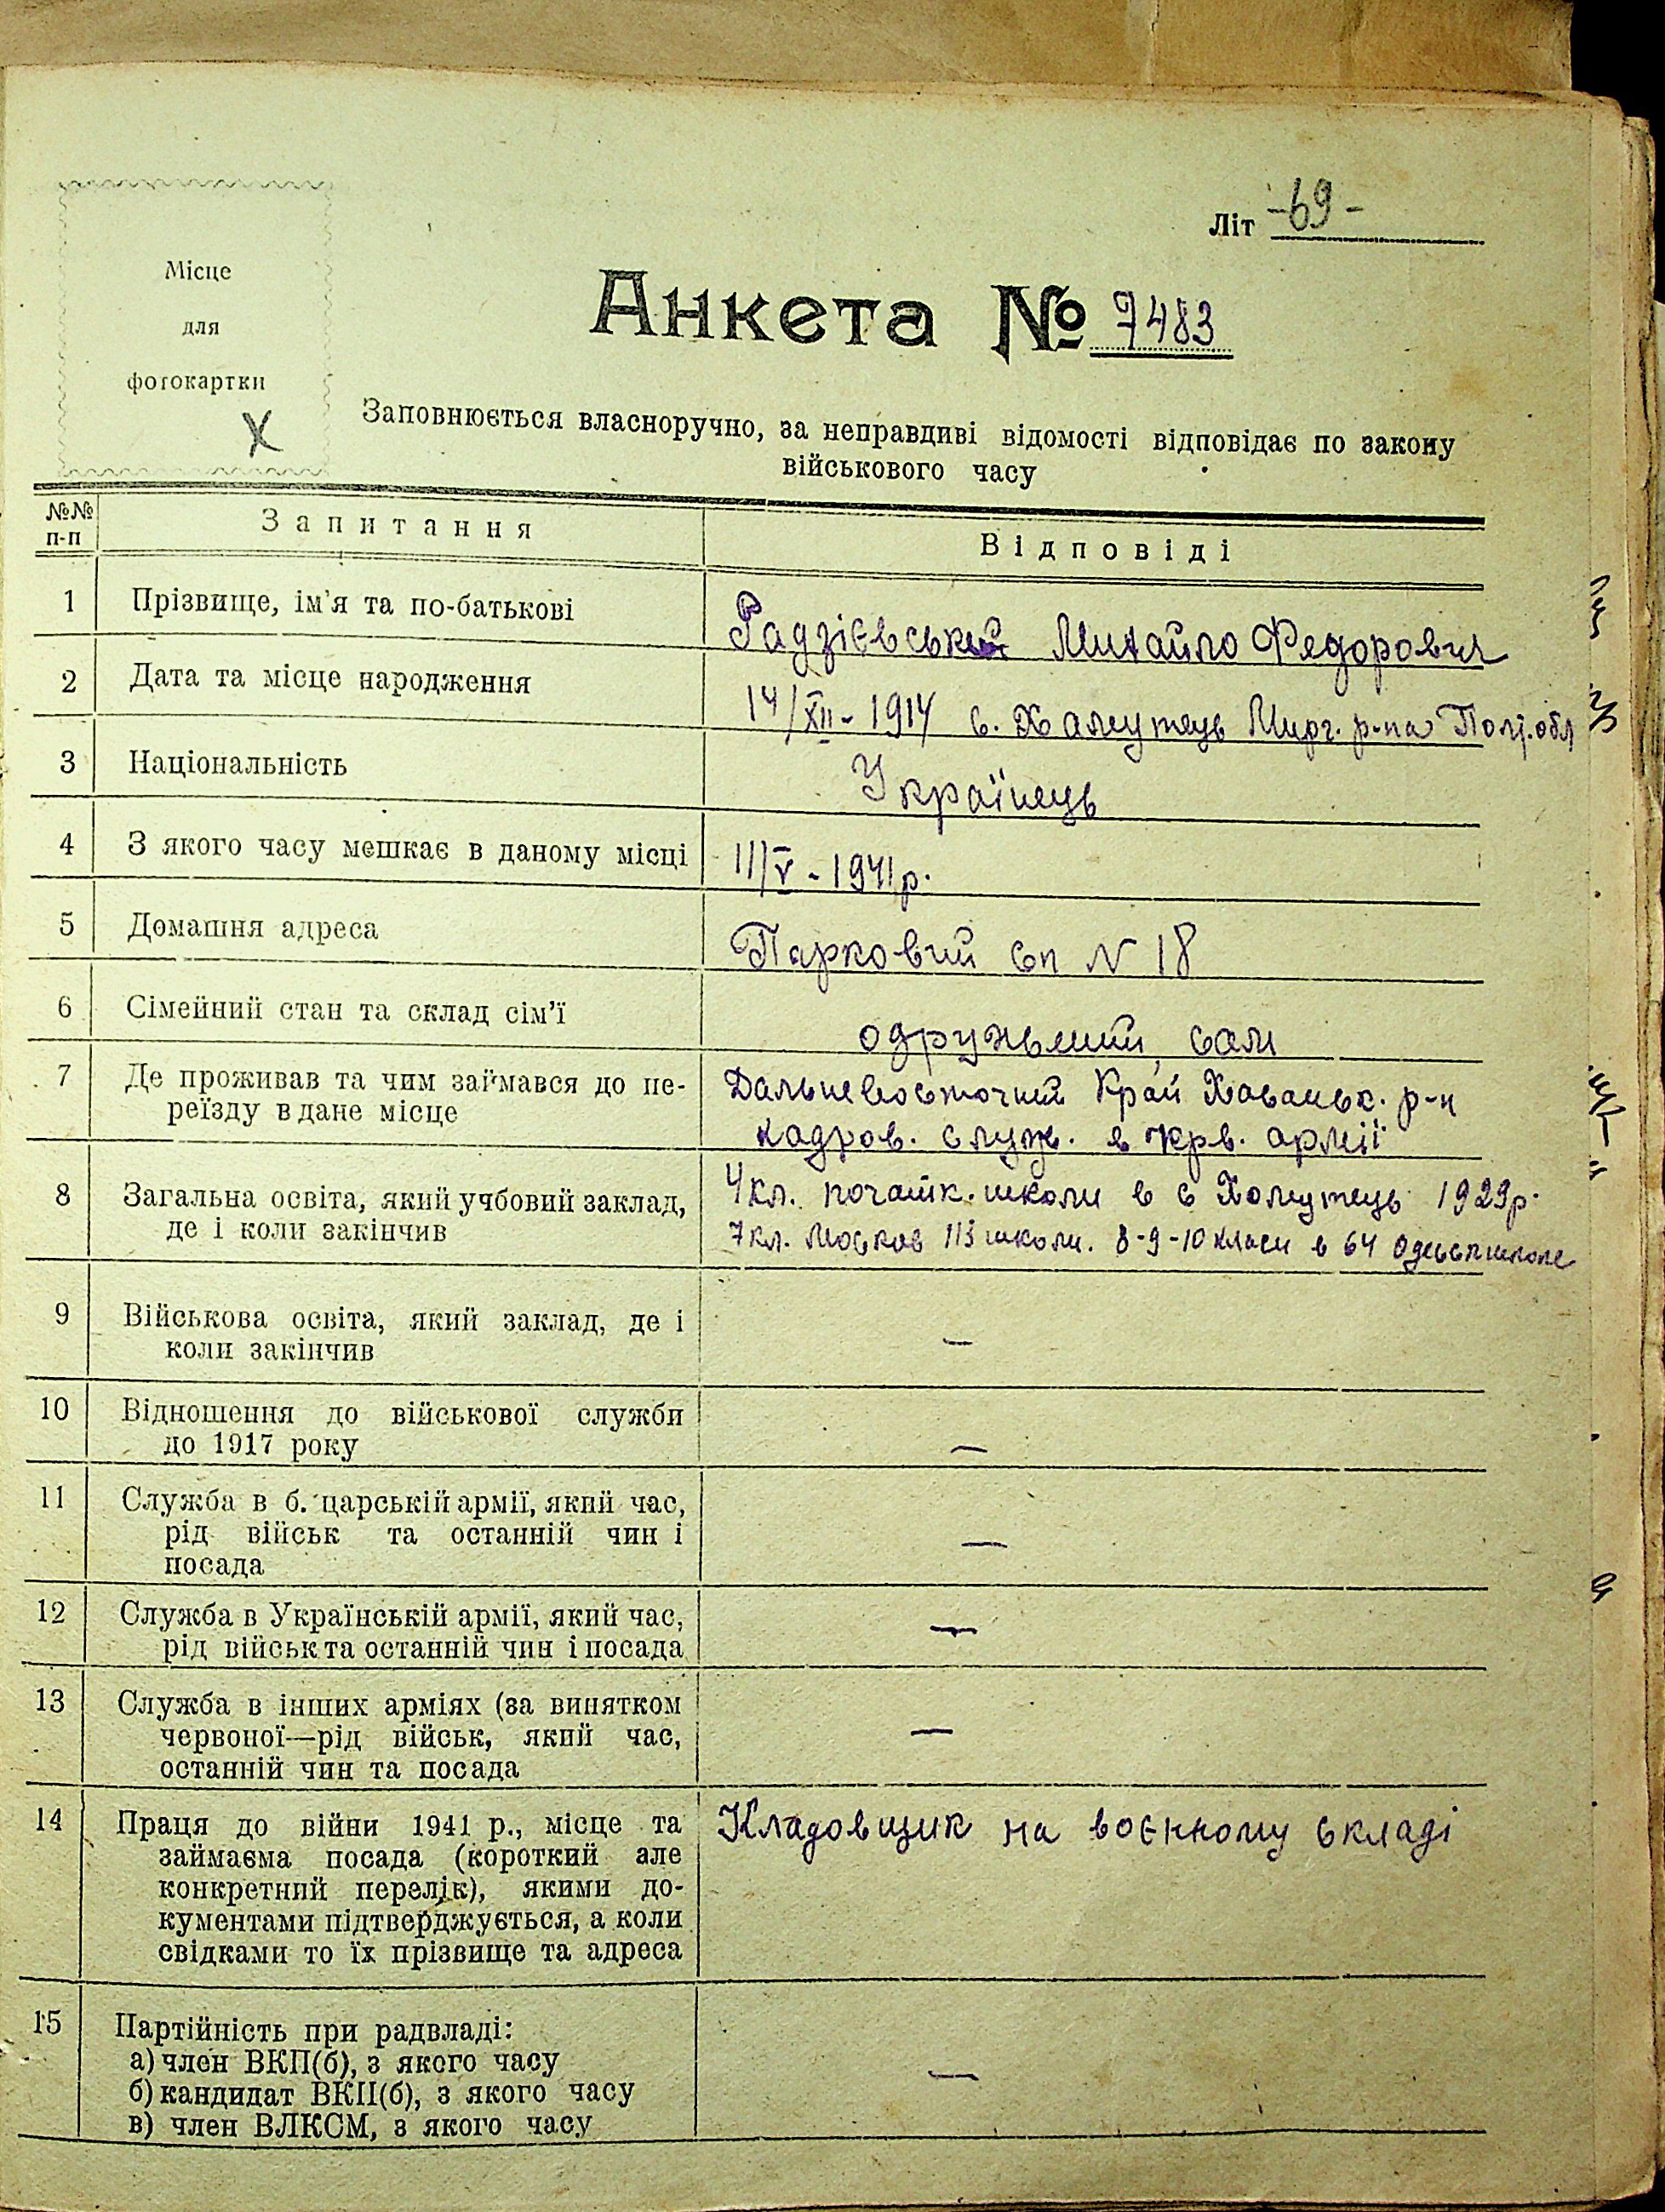 Літ -69-
Місце
для
фотокартки
X
Анкета № 7483
Заповнюється власноручно, за неправдиві відомості відповідає по закону
військового часу
№№ п-п Запитання Відповіді
1 Прізвище, ім'я та по-батькові Радзієвський Михайло Федорович
2 Дата та місце народження 14/XII - 1914 с. Хамутець Мирг. р-на Полт. обл
3 Національність Українець
4 З якого часу мешкає в даному місці 11/V - 1941р.
5 Домашня адреса Парковий сп N 18
6 Сімейний стан та склад сім'ї одружений, сам
7 Де проживав та чим займався до пе- Дальневосточний Край р-н
реїзду в дане місце кадров. служ. в чрв. армії
8 Загальна освіта, який учбовий заклад, 4 кл. початк. школи в с Хомутець 1929р.
де і коли закінчив 7 кл. Москов 113 школи. 8-9-10 класи в 64
9 Військова освіта, який заклад, де і
коли закінчив —
10 Відношення до військової служби
до 1917 року —
11 Служба в б. царській армії, який час,
рід військ та останній чин і —
посада
12 Служба в Українській армії, який час, —
рід військ та останній чин і посада
13 Служба в інших арміях (за винятком
червоної—рід військ, який час, —
останній чин та посада
14 Праця до війни 1941 р., місце та Кладовщик на воєнному складі
займаєма посада (короткий але
конкретний перелік), якими до-
кументами підтверджується, а коли
свідками то їх прізвище та адреса
15 Партійність при радвладі:
а) член ВКП(б), з якого часу
б) кандидат ВКП(б), з якого часу —
в) член ВЛКСМ, з якого часу